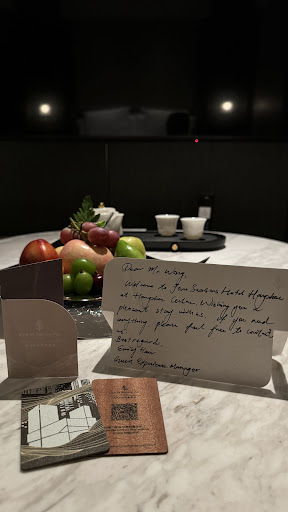 Dear Mr. Wang,
Welcome to Four Seasons Hotel Hangzhou
at Hangzhou Centre. Wishing you a
pleasant stay with us. If you need
anything please feel free to contact
us.
Best regard,
Guest Experience Manager